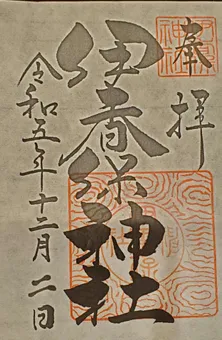 奉拝
伊香保神社
令和五年十二月二日